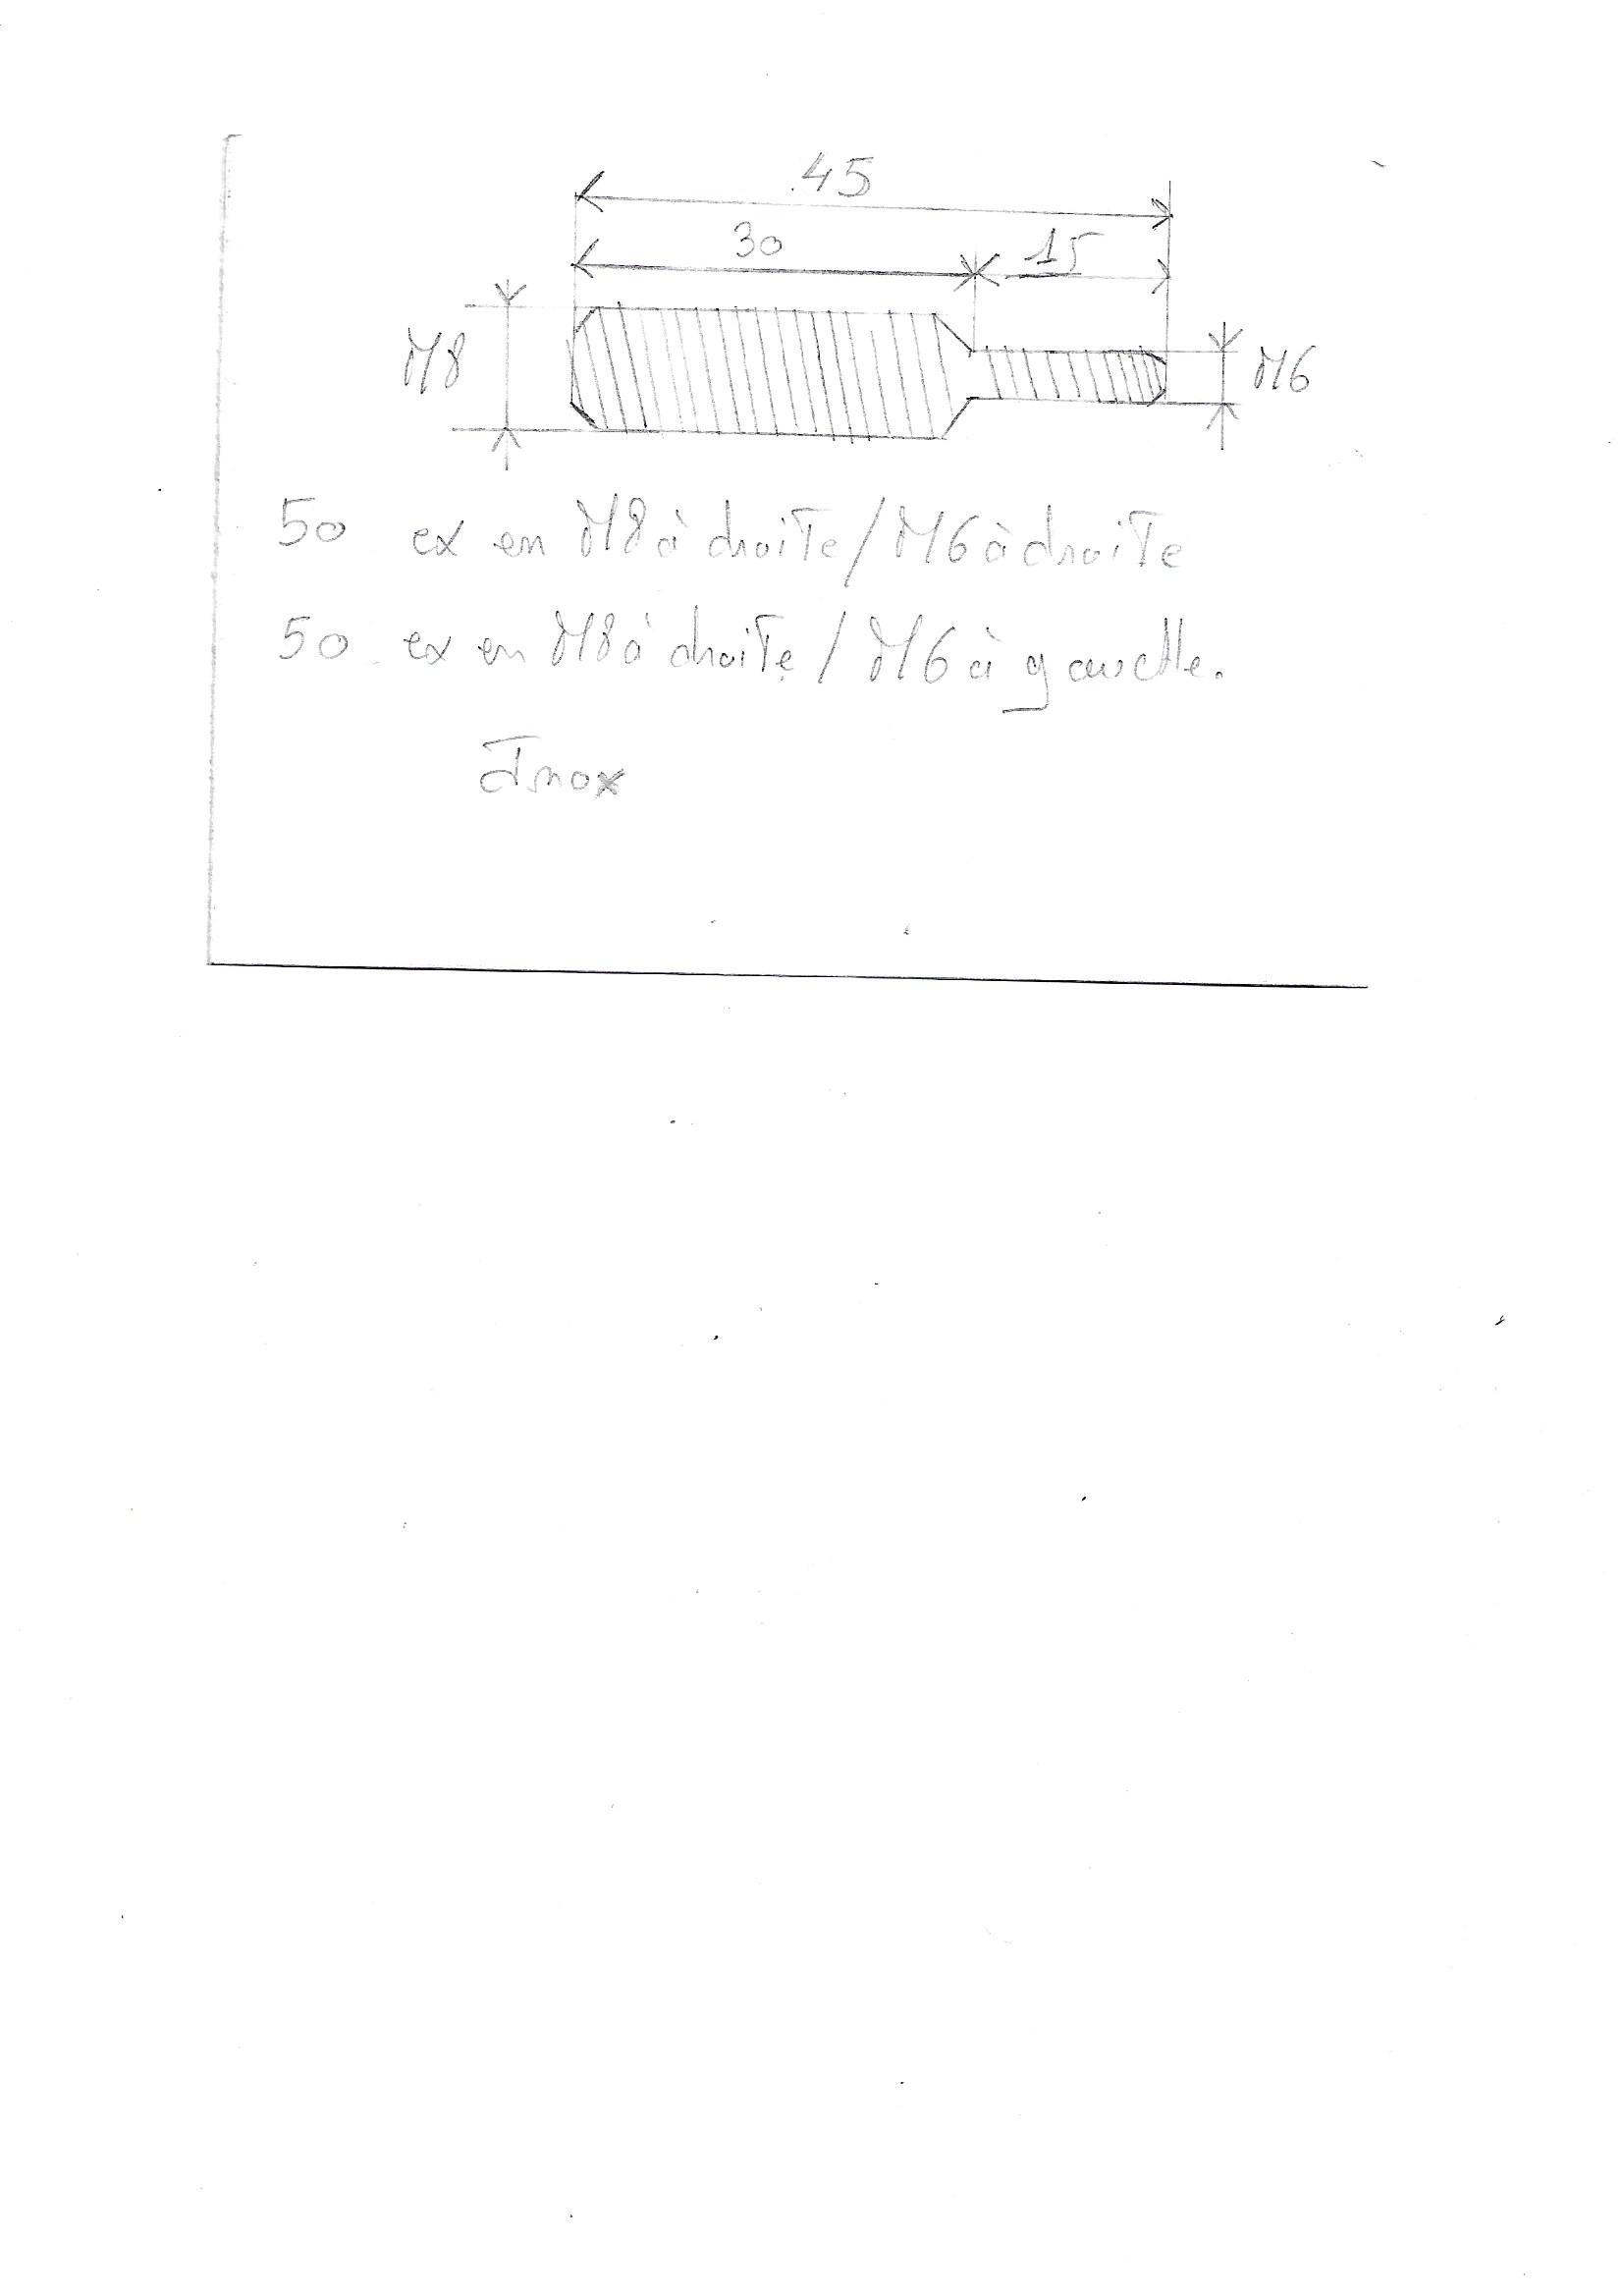 45
30
15
M8
M6
50 ex en M8 à droite / M6 à droite
50 ex en M8 à droite / M6 à gauche.
Inox